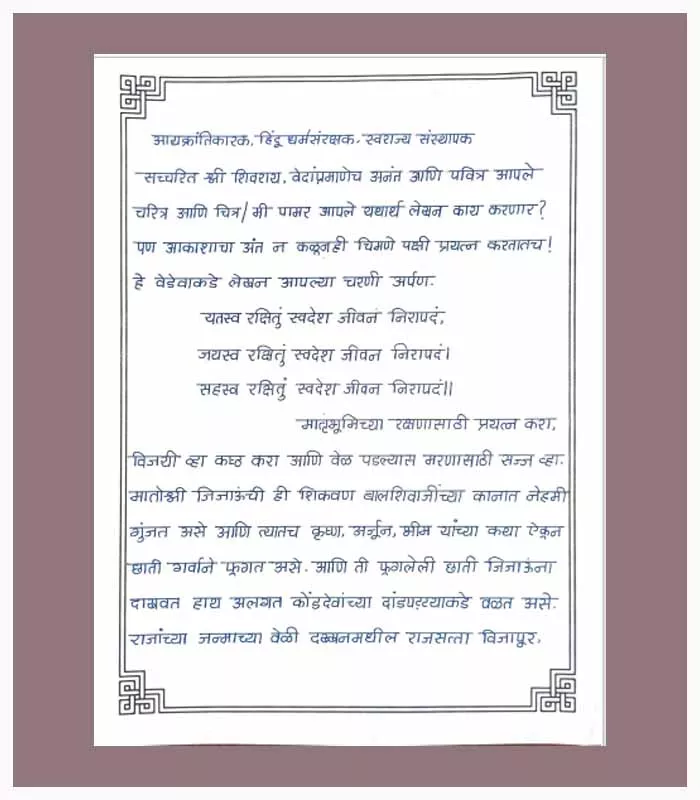 आद्यक्रांतिकारक, हिंदू धर्मसंरक्षक. स्वराज्य संस्थापक
सच्चरित श्री शिवराय, वेदांप्रमाणेच अनंत आणि पवित्र आपले
चरित्र आणि चित्र/ मी पामर आपले यथार्थ लेखन काय करणार?
पण आकाशाचा अंत न कळूनही चिमणे पक्षी प्रयत्न करतातच!
हे वेडेवाकडे लेखन आपल्या चरणी अर्पण.
यतस्व रक्षितुं स्वदेश जीवनं निरापदं,
जयस्व रक्षितुं स्वदेश जीवन निरापदं।
सहस्व रक्षितुं स्वदेश जीवन निरापदं॥
मातृभूमिच्या रक्षणासाठी प्रयत्न करा,
विजयी व्हा कष्ठ करा आणि वेळ पडल्यास मरणासाठी सज्ज व्हा.
मातोश्री जिजाऊंची ही शिकवण बालशिवाजींच्या कानात नेहमी
गुंजत असे आणि त्यातच कृष्ण, अर्जून, भीम यांच्या कथा ऐकून
छाती गर्वाने फूगत असे. आणि ती फूगलेली छाती जिजाऊंना
दाखवत हाथ अलगत कोंडदेवांच्या दांडपट्ट्याकडे वळत असे.
राजांच्या जन्माच्या वेळी दख्खनमधील राजसत्ता विजापूर,